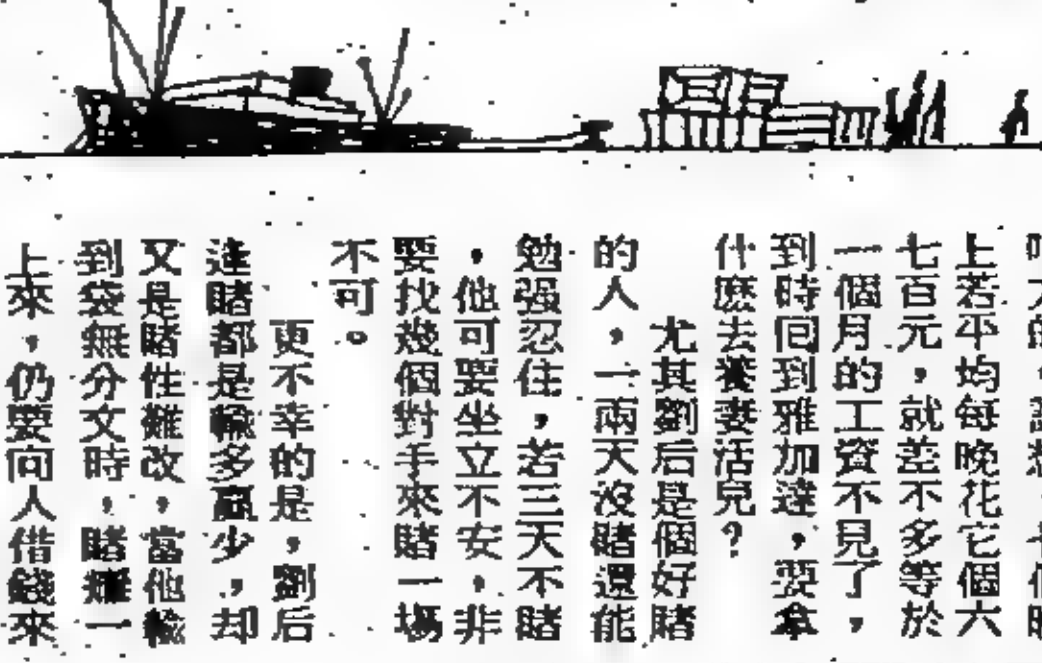 上若平均每晚花它個六
七百元，就差不多等於
一個月的工資不見了，
到時间到雅加達，要拿
什麽去養妻活兒？
尤其劉后是個好賭
的人，一兩天沒賭還能
勉强忍住，若三天不賭
，他可要坐立不安，非
要找幾個對手來賭一場
不可。
更不幸的是，劉后
逢賭都是輸多贏少，却
又是賭性難改，當他輸
到袋無分文時，賭癮一
上來，仍要向人借錢來